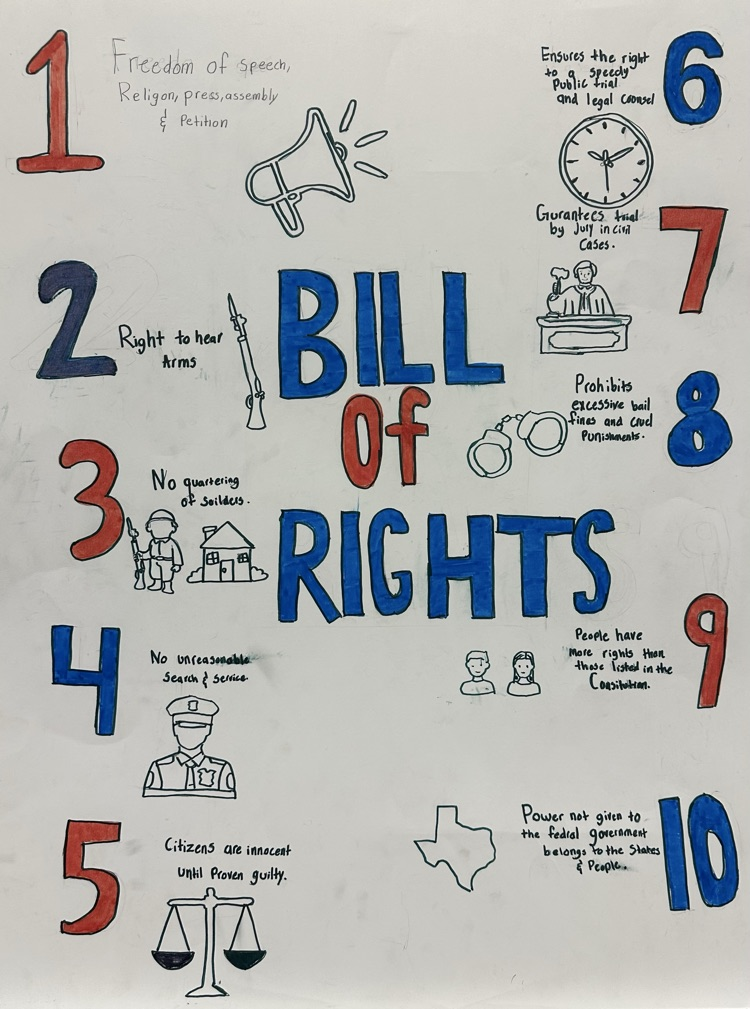 1
Freedom of speech,
Religon, press, assembly
& Petition
2
Right to hear
Arms
3
No quartering
of soilders.
4
No unreasonable
Search & service
5
Citizens are innocent
Until Proven guilty.
BILL
Of
RIGHTS
6
Ensures the right
to a speedy
Public trial
and legal counsel
7
Gurantees trial
by Jury in civil
Cases.
8
Prohibits
excessive bail
fines and cruel
Punishments.
9
People have
more rights than
those listed in the
Consitution.
10
Power not given to
the fedral government
belongs to the States
& People.